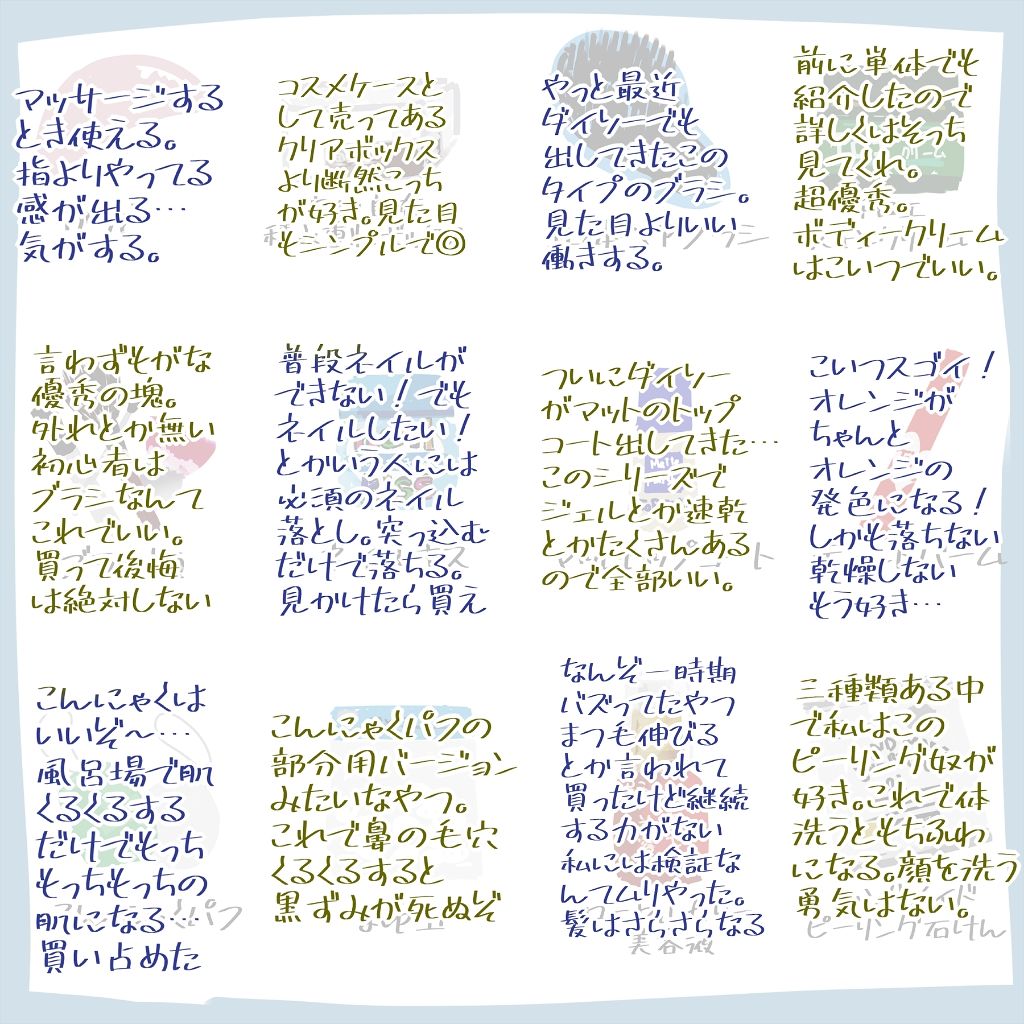 マッサージする
とき使える。
指よりやってる
感が出る…
気がする。
コスメケースと
して売ってある
クリアボックス
より断然こっち
が好き。見た目
もシンプルで◎
やっと最近
ダイソーでも
出してきたこの
タイプのブラシ。
見た目よりいい
働きする。
前に単体でも
紹介したので
詳しくはそっち
見てくれ。
超優秀。
ボディークリーム
はこいつでいい。
言わずもがな
優秀の塊。
外れとか無い
初心者は
ブラシなんて
これでいい。
買って後悔
は絶対しない
普段ネイルが
できない！でも
ネイルしたい！
とかいう人には
必須のネイル
落とし。突っ込む
だけで落ちる。
見かけたら買え
ついにダイソー
がマットのトップ
コート出してきた…
このシリーズで
ジェルとか速乾
とかたくさんある
ので全部いい。
こいつスゴイ！
オレンジが
ちゃんと
オレンジの
発色になる！
しかも落ちない
乾燥しない
もう好き…
こんにゃくは
いいぞ〜…
風呂場で肌
くるくるする
だけでもっち
もっちもっちの
肌になる…
買い占めた
パフ
こんにゃくパフの
部分用バージョン
みたいなやつ。
これで鼻の毛穴
くるくるすると
黒ずみが死ぬぞ
なんぞ一時期
バズってたやつ
まつ毛伸びる
とか言われて
買ったけど継続
する力がない
私には検証な
んてムリやった。
髪はさらさらなる
美容液
三種類ある中
で私はこの
ピーリング奴が
好き。これで体
洗うともちふわ
になる。顔を洗う
勇気はない。
ピーリング石けん